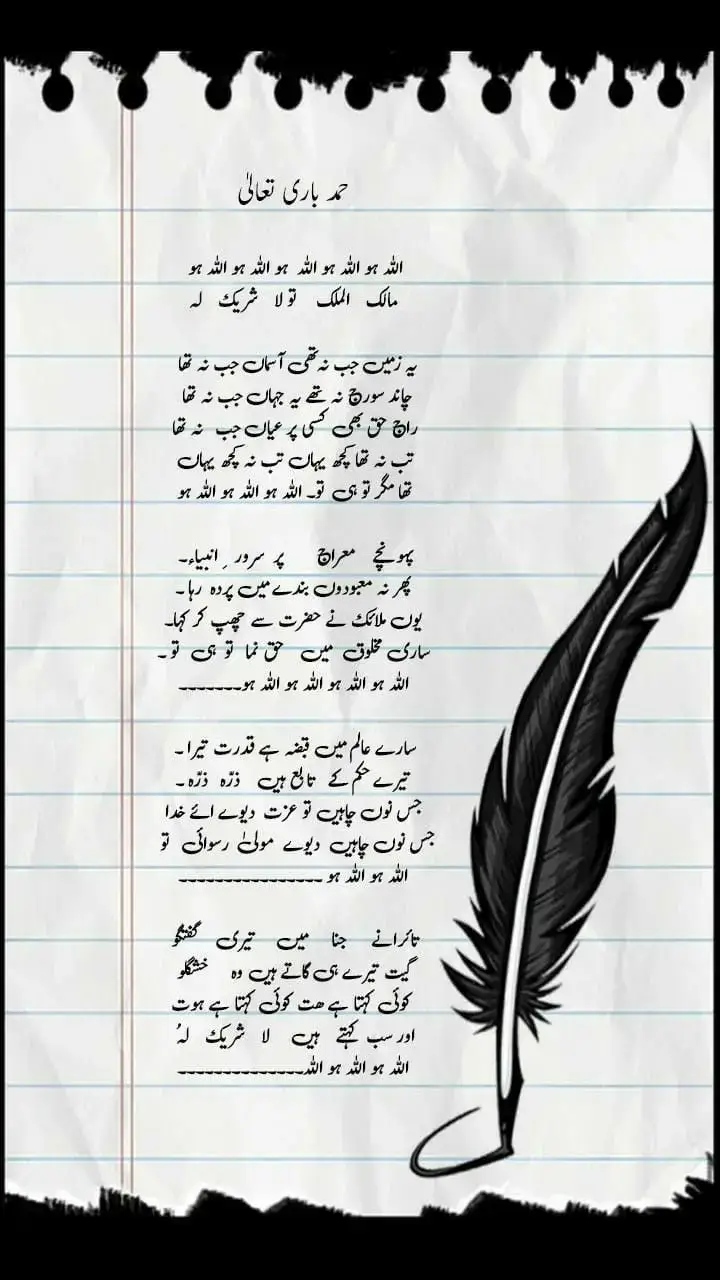 حمد باری تعالیٰ
اللہ ہو اللہ ہو اللہ ہو اللہ ہو اللہ ہو
مالک الملک تو لا شریک لہ
یہ زمیں جب نہ تھی آسماں جب نہ تھا
چاند سورج نہ تھے یہ جہاں جب نہ تھا
راج حق بھی کسی پر عیاں جب نہ تھا
تب نہ تھا کچھ یہاں تب نہ کچھ یہاں
تھا مگر تو ہی تو۔ اللہ ہو اللہ ہو اللہ ہو
پہونچے معراج پر سرور ِانبیاء۔
پھر نہ معبودوں بندے میں پردہ رہا۔
یوں ملائک نے حضرت سے چھپ کر کہا۔
ساری مخلوق میں حق نما تو ہی تو۔
اللہ ہو اللہ ہو اللہ ہو اللہ ہو۔۔۔۔۔۔۔
سارے عالم میں قبضہ ہے قدرت تیرا۔
تیرے حکم کے تابع ہیں ذرّہ ذرّہ۔
جس نوں چاہیں تو عزت دیوے ائے خدا
جس نوں چاہیں دیوے مولیٰ رسوائی تو
اللہ ہو اللہ ہو ۔۔۔۔۔۔۔۔۔۔۔۔۔۔۔۔
تائرانے جنا میں تیری گفتگو
گیت تیرے ہی گاتے ہیں وہ خشگلو
کوئی کہتا ہے ھت کوئی کہتا ہے ہوت
اور سب کہتے ہیں لا شریک لہُ
اللہ ہو اللہ ہو اللہ۔۔۔۔۔۔۔۔۔۔۔۔۔۔